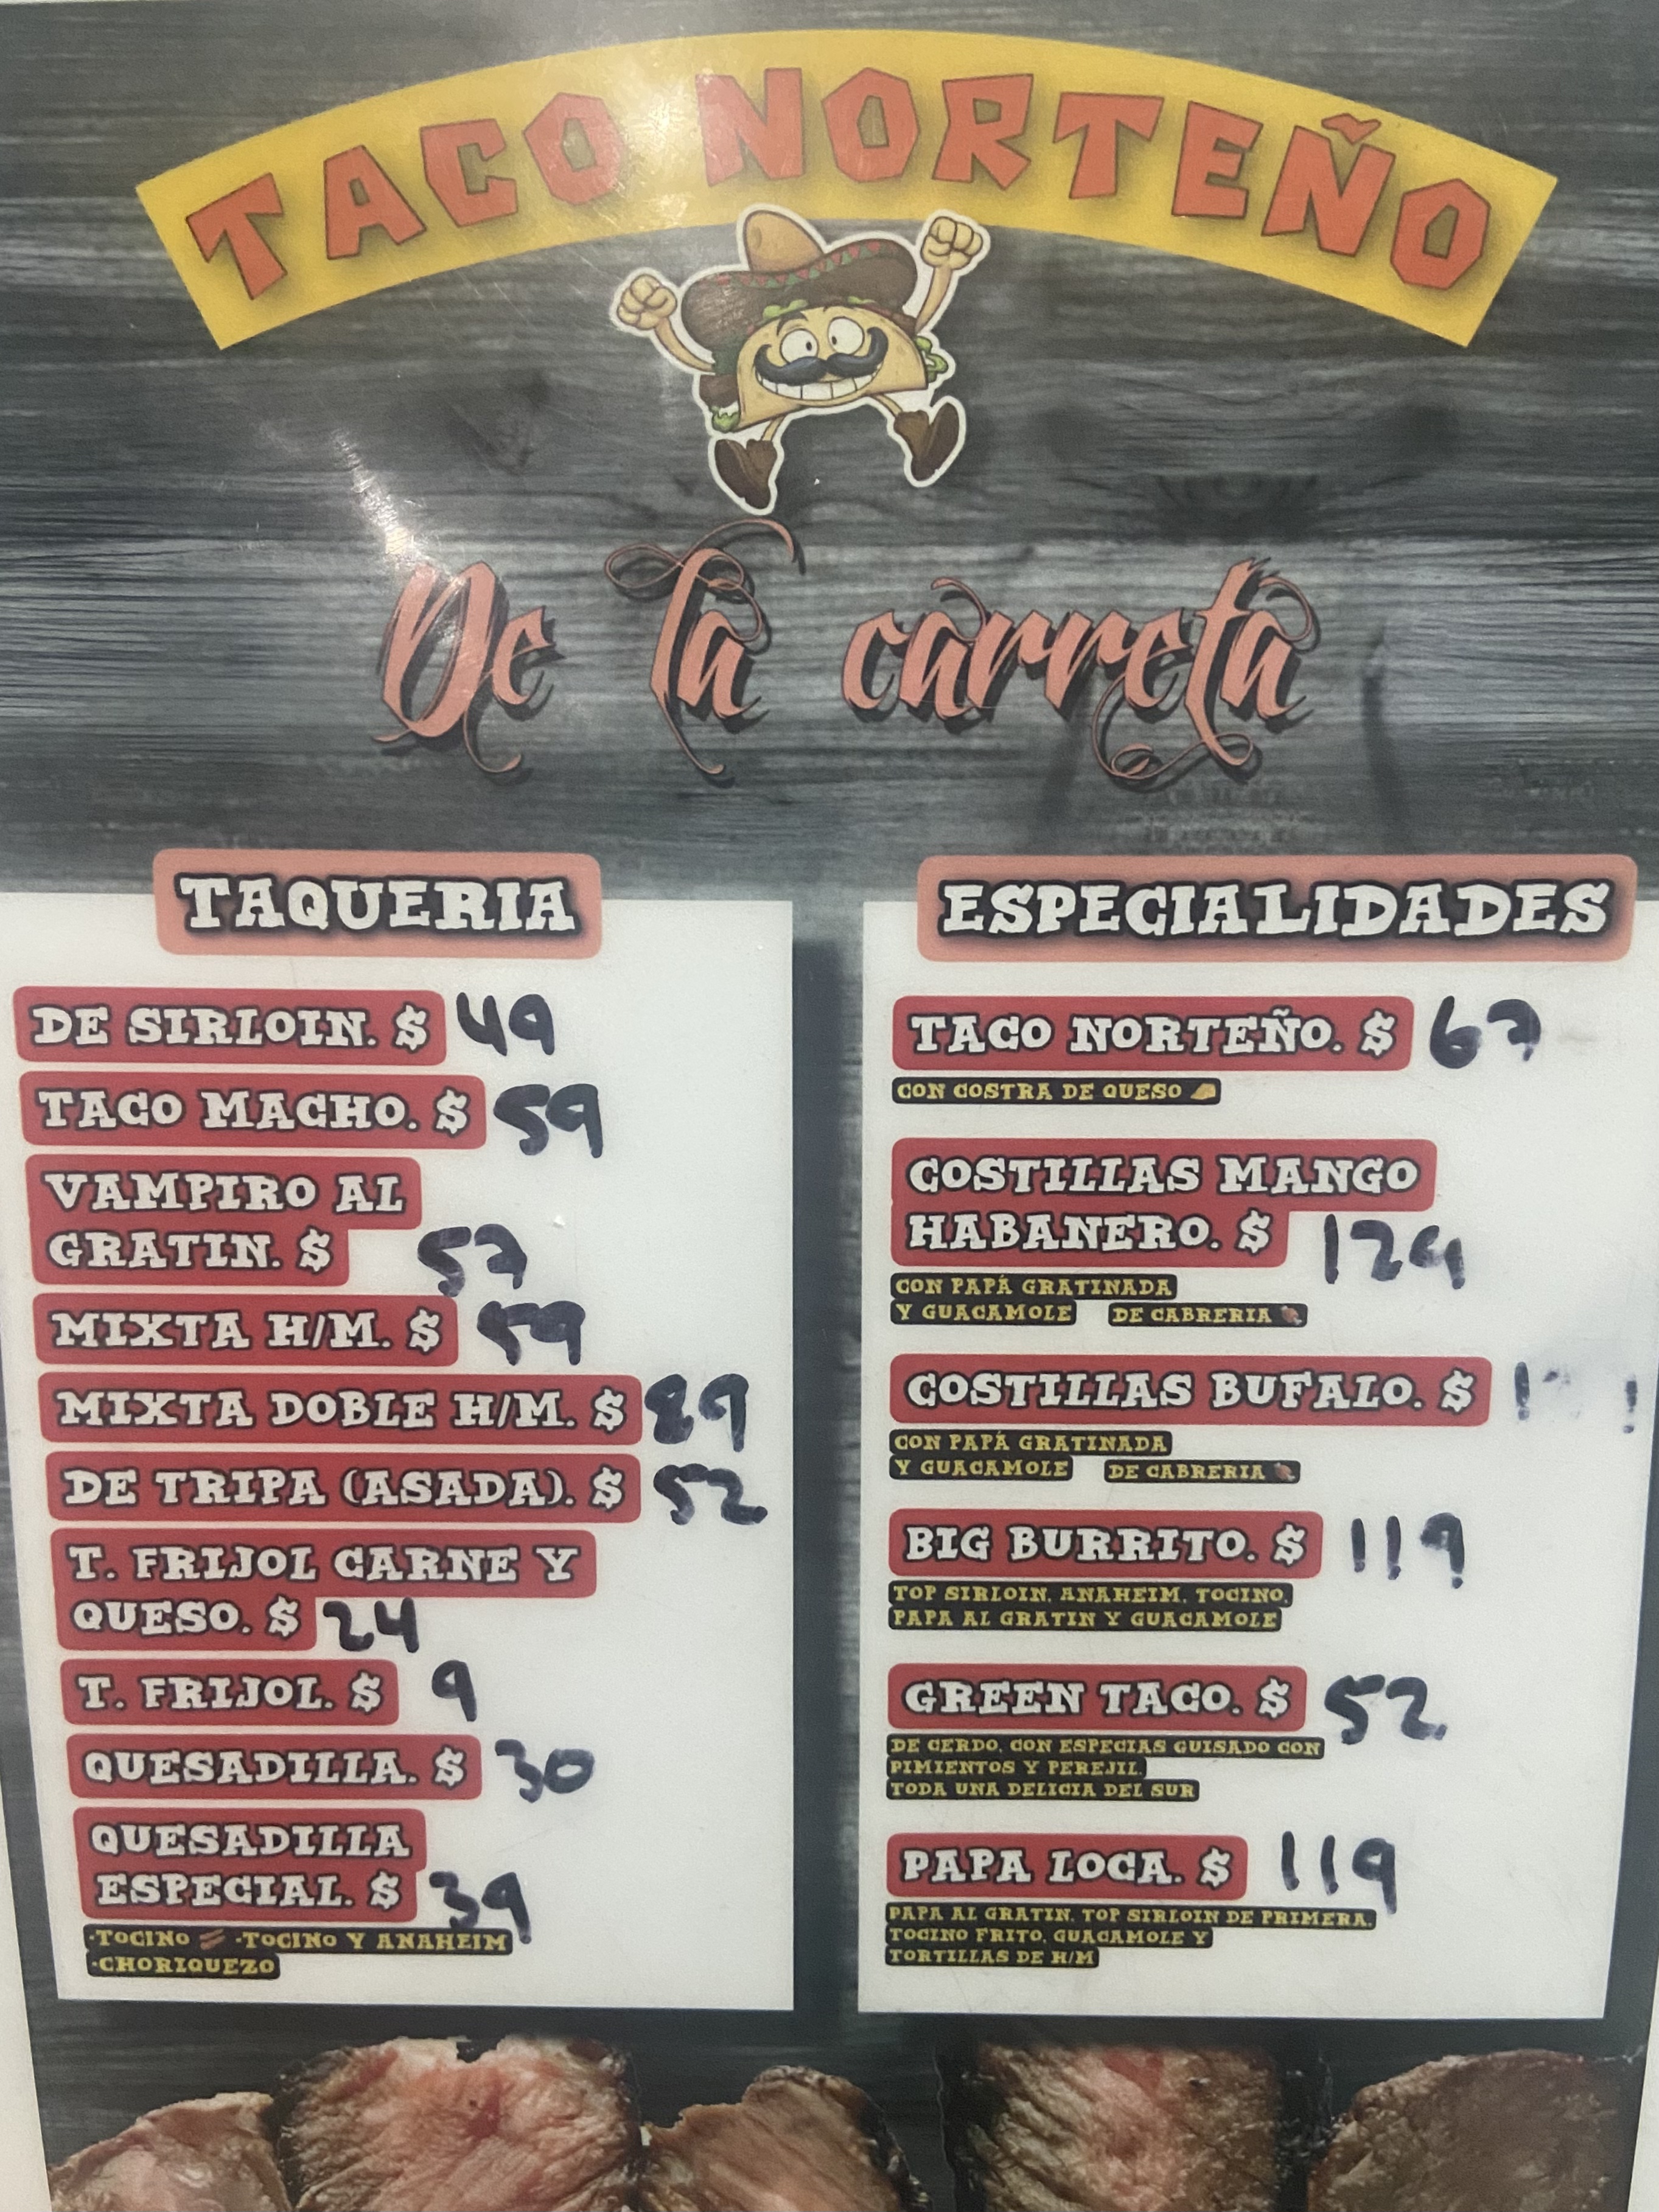 TACO NORTEÑO
De la carreta
TAQUERIA
DE SIRLOIN. $ 49
TACO MACHO. $ 59
VAMPIRO AL
GRATIN. $ 57
MIXTA H/M. $ 59
MIXTA DOBLE H/M. $ 89
DE TRIPA (ASADA). $ 52
T. FRIJOL CARNE Y
QUESO. $ 24
T. FRIJOL. $ 9
QUESADILLA. $ 30
QUESADILLA
ESPECIAL. $ 39
·TOCINO 🥓 ·TOCINO Y ANAHEIM
·CHORIQUEZO
ESPECIALIDADES
TACO NORTEÑO. $ 67
CON COSTRA DE QUESO
COSTILLAS MANGO
HABANERO. $ 129
CON PAPÁ GRATINADA
Y GUACAMOLE DE CABRERIA
COSTILLAS BUFALO. $
CON PAPÁ GRATINADA
Y GUACAMOLE DE CABRERIA
BIG BURRITO. $ 119
TOP SIRLOIN, ANAHEIM, TOCINO,
PAPA AL GRATIN Y GUACAMOLE
GREEN TACO. $ 52
DE CERDO, CON ESPECIAS GUISADO CON
PIMIENTOS Y PEREJIL.
TODA UNA DELICIA DEL SUR
PAPA LOCA. $ 119
PAPA AL GRATIN, TOP SIRLOIN DE PRIMERA,
TOCINO FRITO, GUACAMOLE Y
TORTILLAS DE H/M